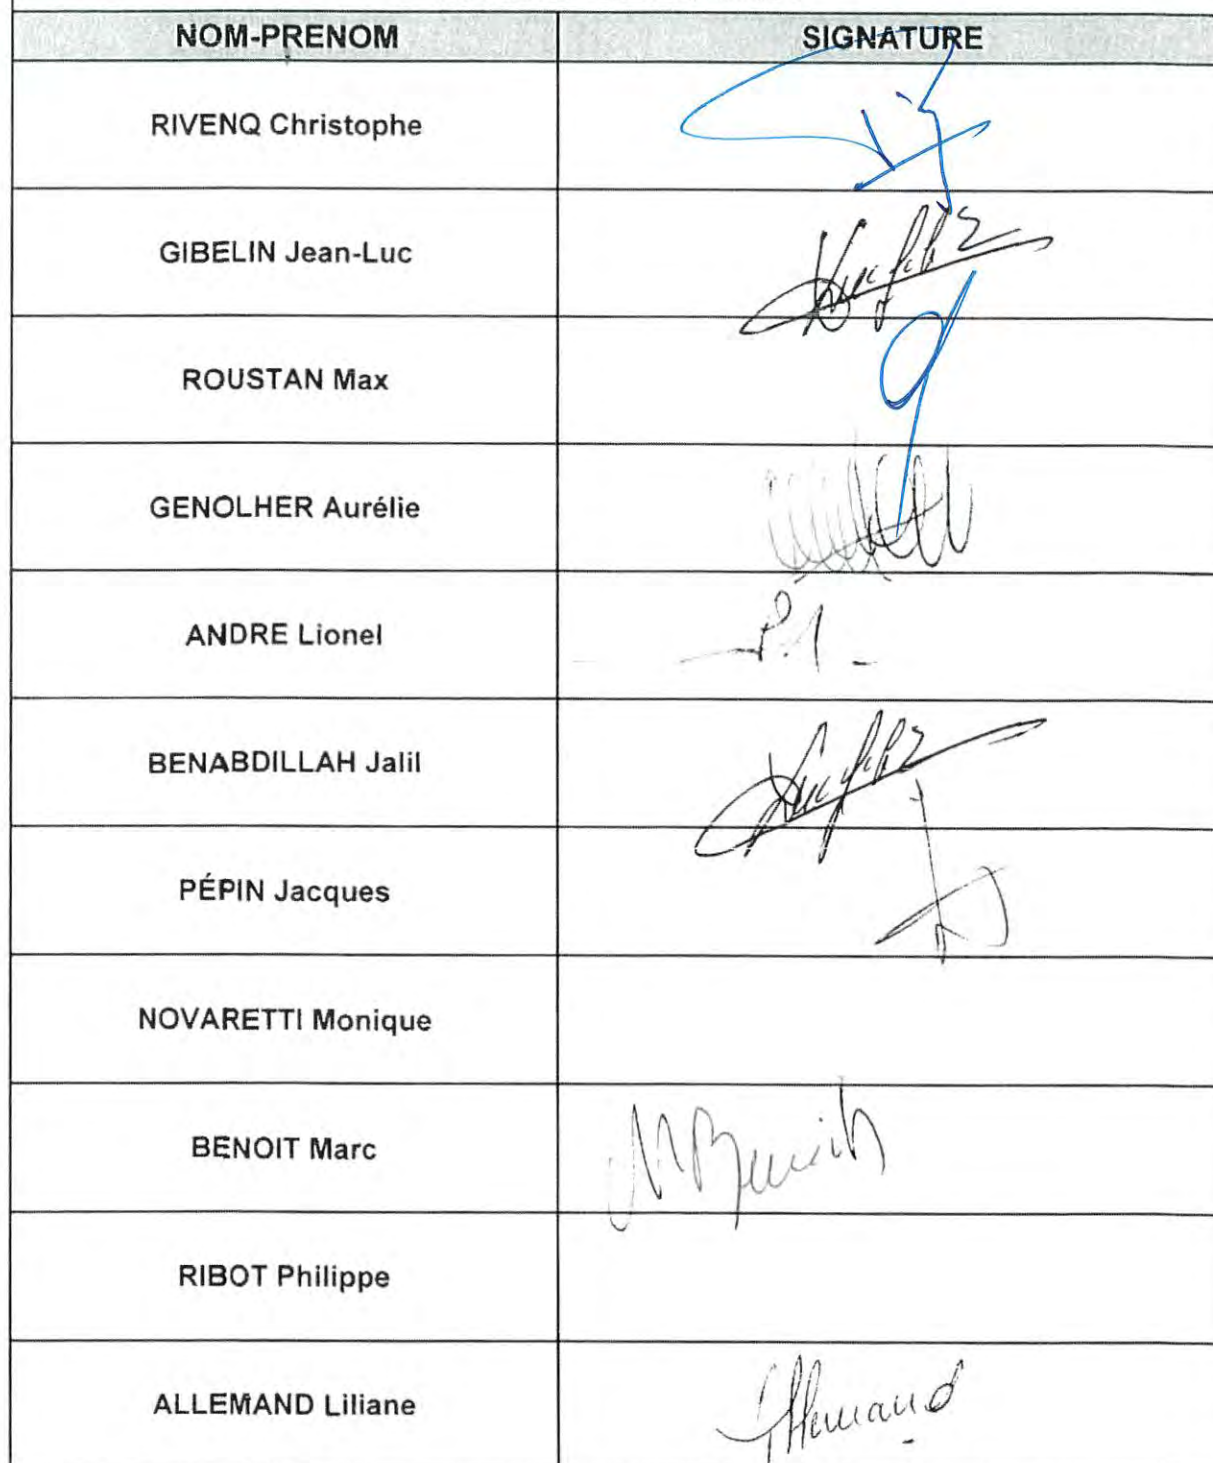 NOM-PRENOM SIGNATURE
RIVENQ Christophe
GIBELIN Jean-Luc
ROUSTAN Max
GENOLHER Aurélie
ANDRE Lionel
BENABDILLAH Jalil
PÉPIN Jacques
NOVARETTI Monique
BENOIT Marc MBenoit
RIBOT Philippe
ALLEMAND Liliane Allemand